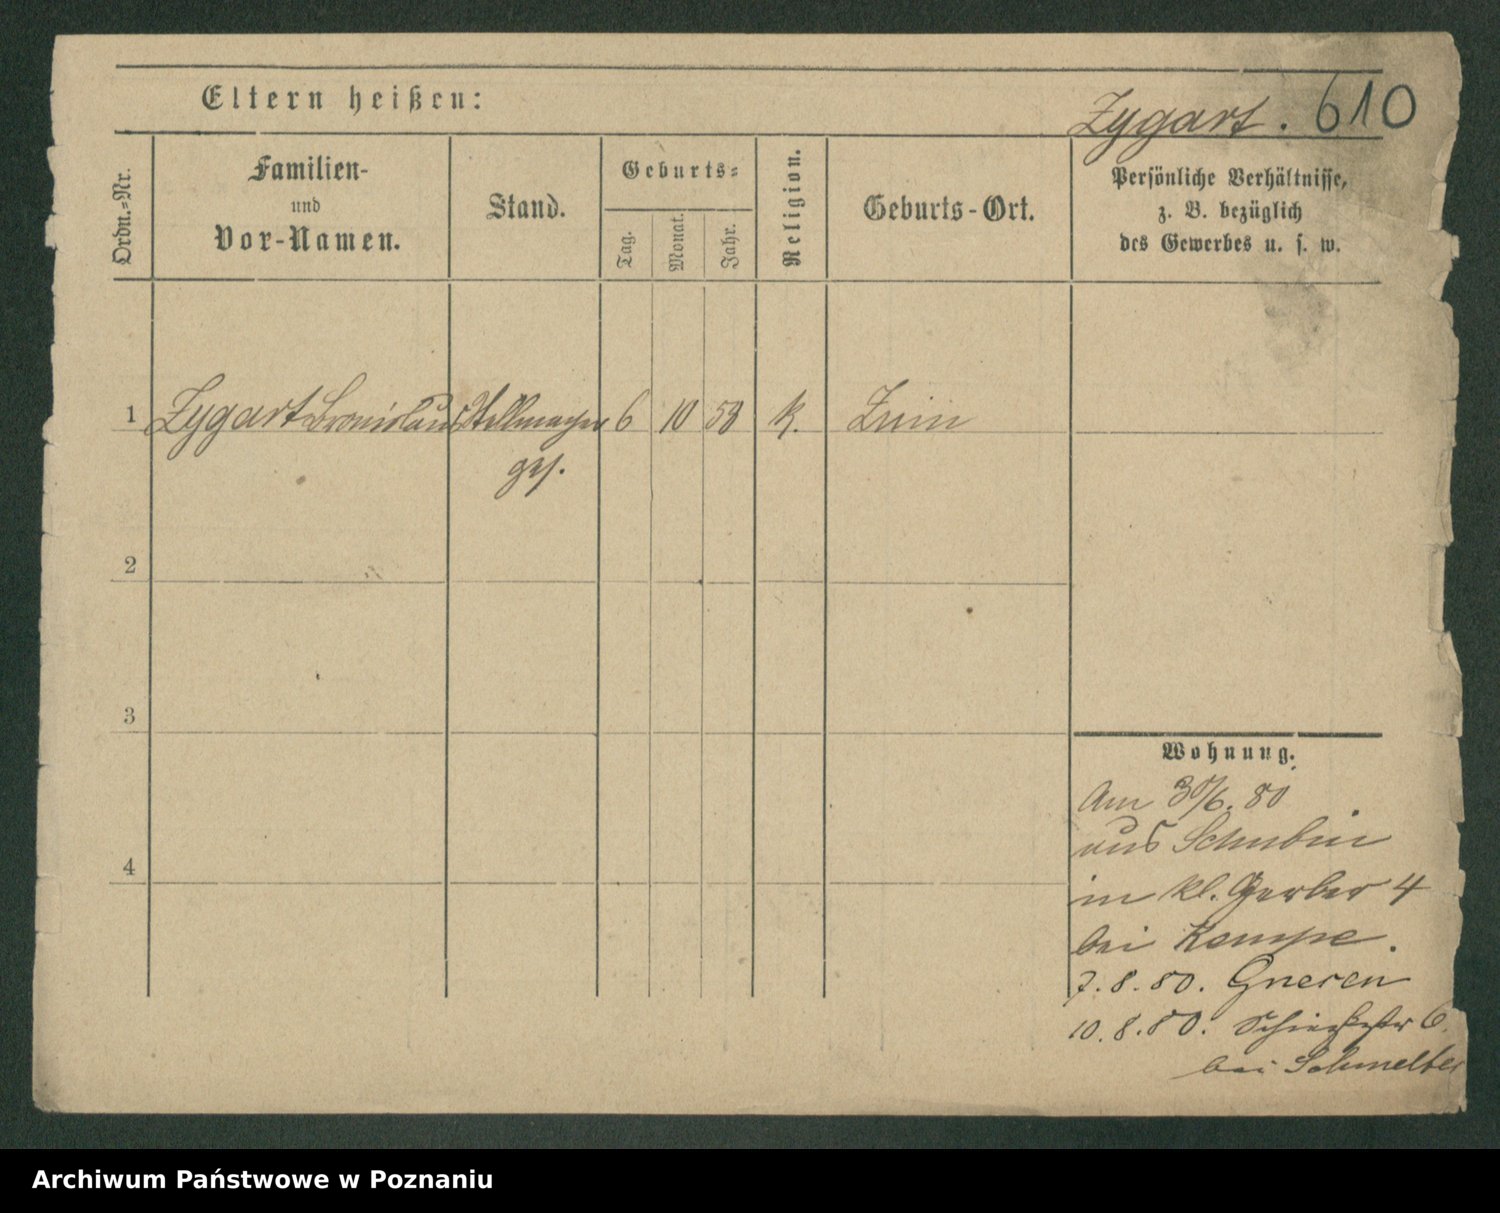 Eltern heißen:
Zygart. 610
Ordn.-Nr.
Familien-
und
Vor-Namen.
Stand.
Geburts-
Tag.
Monat.
Jahr.
Religion.
Geburts-Ort.
Persönliche Verhältnisse,
z. B. bezüglich
des Gewerbes u. s. w.
1 Zygart Bronislaus Stellmacher 6 10 58 k. Znin
ges.
2
3
4
Wohnung.
Am 30/6. 80
aus Schubin
in kl. Gerber 4
bei Kempe.
7. 8. 80. Gnesen
10. 8. 80. 6.
bei Schmelter
Archiwum Państwowe w Poznaniu